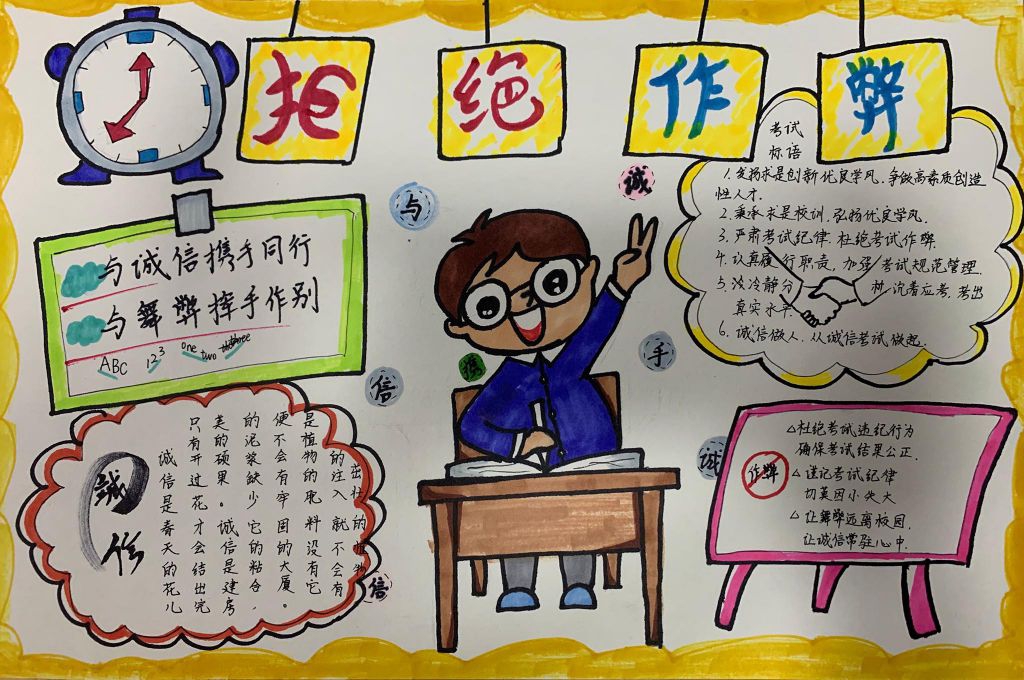 拒绝作弊
考试
标语
1.发扬求是创新优良学风.争做高素质创造
性人才.
2.秉承求是校训,弘扬优良学风.
3.严肃考试纪律 杜绝考试作弊
4.认真履行职责,加强考试规范管理.
5.冷冷静分 析 沉着应考,考出
真实水平.
6.诚信做人,从诚信考试做起.
与诚信携手同行
与舞弊挥手作别
ABC 123 one two three
与
诚
信
携
手
诚
信
誠信
诚信是春天的花儿
只有开过花才会结出完
美的硕果。诚信是建房
的泥浆缺少它的粘合,
便不会有牢固的大厦。
是植物的肥料没有它
的注入就不会有
茁壮的植物
作弊
△杜绝考试违纪行为
确保考试结果公正.
△谨记考试纪律
切莫因小失大
△让舞弊远离校园,
让诚信常驻心中.